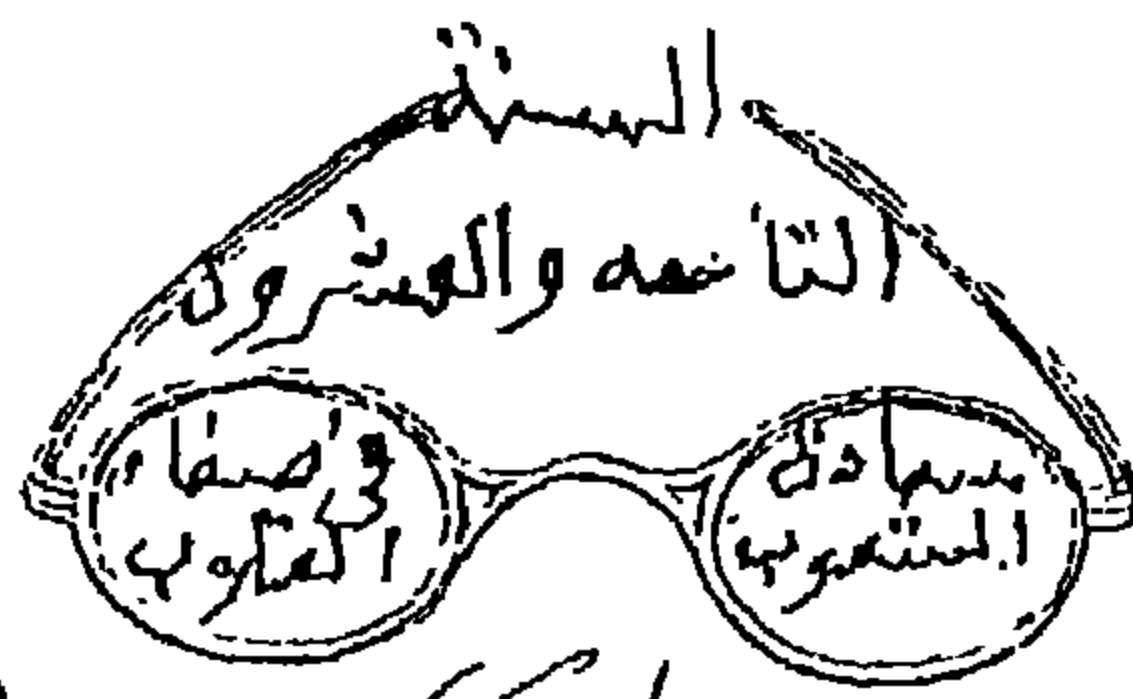 السنة
التاسعه والعشرون
سعادة
الشعوب
في صفاء
القلوب